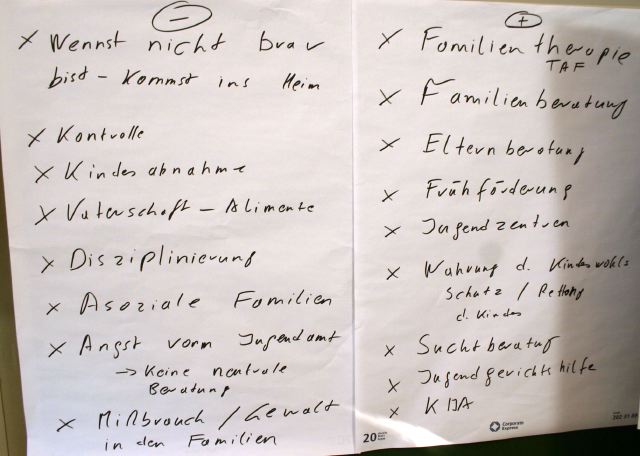 −
× Wennst nicht brav
bist – Kommst ins Heim
× Kontrolle
× Kindesabnahme
× Vaterschaft – Alimente
× Disziplinierung
× Asoziale Familien
× Angst vorm Jugendamt
→ Keine neutrale
Beratung
× Mißbrauch / Gewalt
in den Familien
+
× Familientherapie
TAF
× Familienberatung
× Elternberatung
× Frühförderung
× Jugendzentren
× Wahrung d. Kindeswohls
Schutz / Rettung
d. Kindes
× Suchtberatung
× Jugendgerichtshilfe
× KIJA
20
Corporate
Express